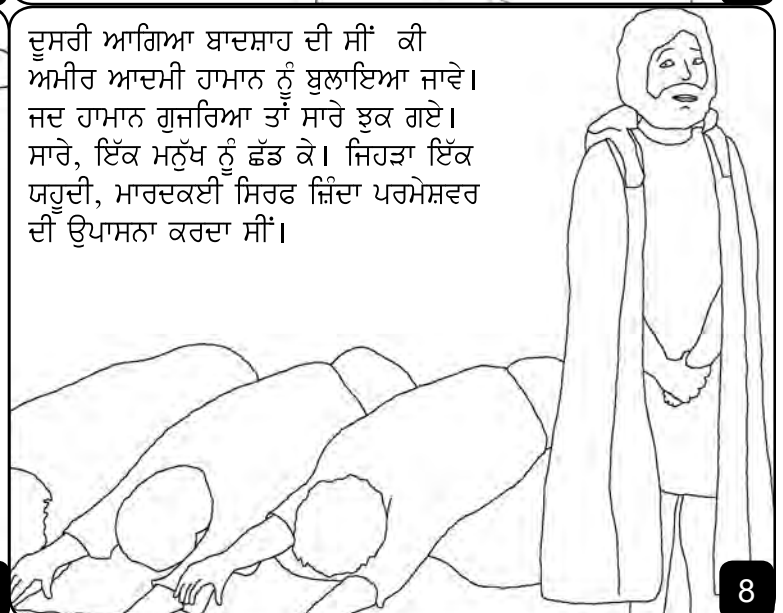 ਦੂਸਰੀ ਆਗਿਆ ਬਾਦਸ਼ਾਹ ਦੀ ਸੀਂ ਕੀ
ਅਮੀਰ ਆਦਮੀ ਹਾਮਾਨ ਨੂੰ ਬੁਲਾਇਆ ਜਾਵੇ।
ਜਦ ਹਾਮਾਨ ਗੁਜਰਿਆ ਤਾਂ ਸਾਰੇ ਝੁਕ ਗਏ।
ਸਾਰੇ, ਇੱਕ ਮਨੁੱਖ ਨੂੰ ਛੱਡ ਕੇ। ਜਿਹੜਾ ਇੱਕ
ਯਹੂਦੀ, ਮਾਰਦਕਈ ਸਿਰਫ ਜ਼ਿੰਦਾ ਪਰਮੇਸ਼ਵਰ
ਦੀ ਉਪਾਸਨਾ ਕਰਦਾ ਸੀਂ।
8